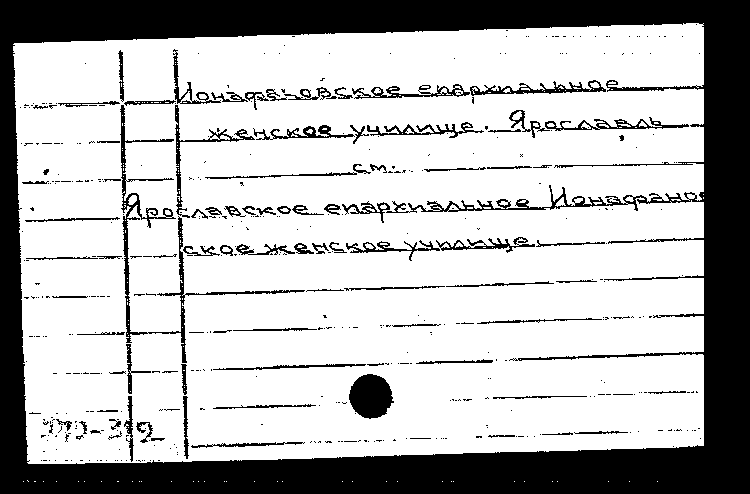 Ионафановское епархиальное
женское училище. Ярославль
см.
Ярославское епархиальное Ионафанов
ское женское училище.